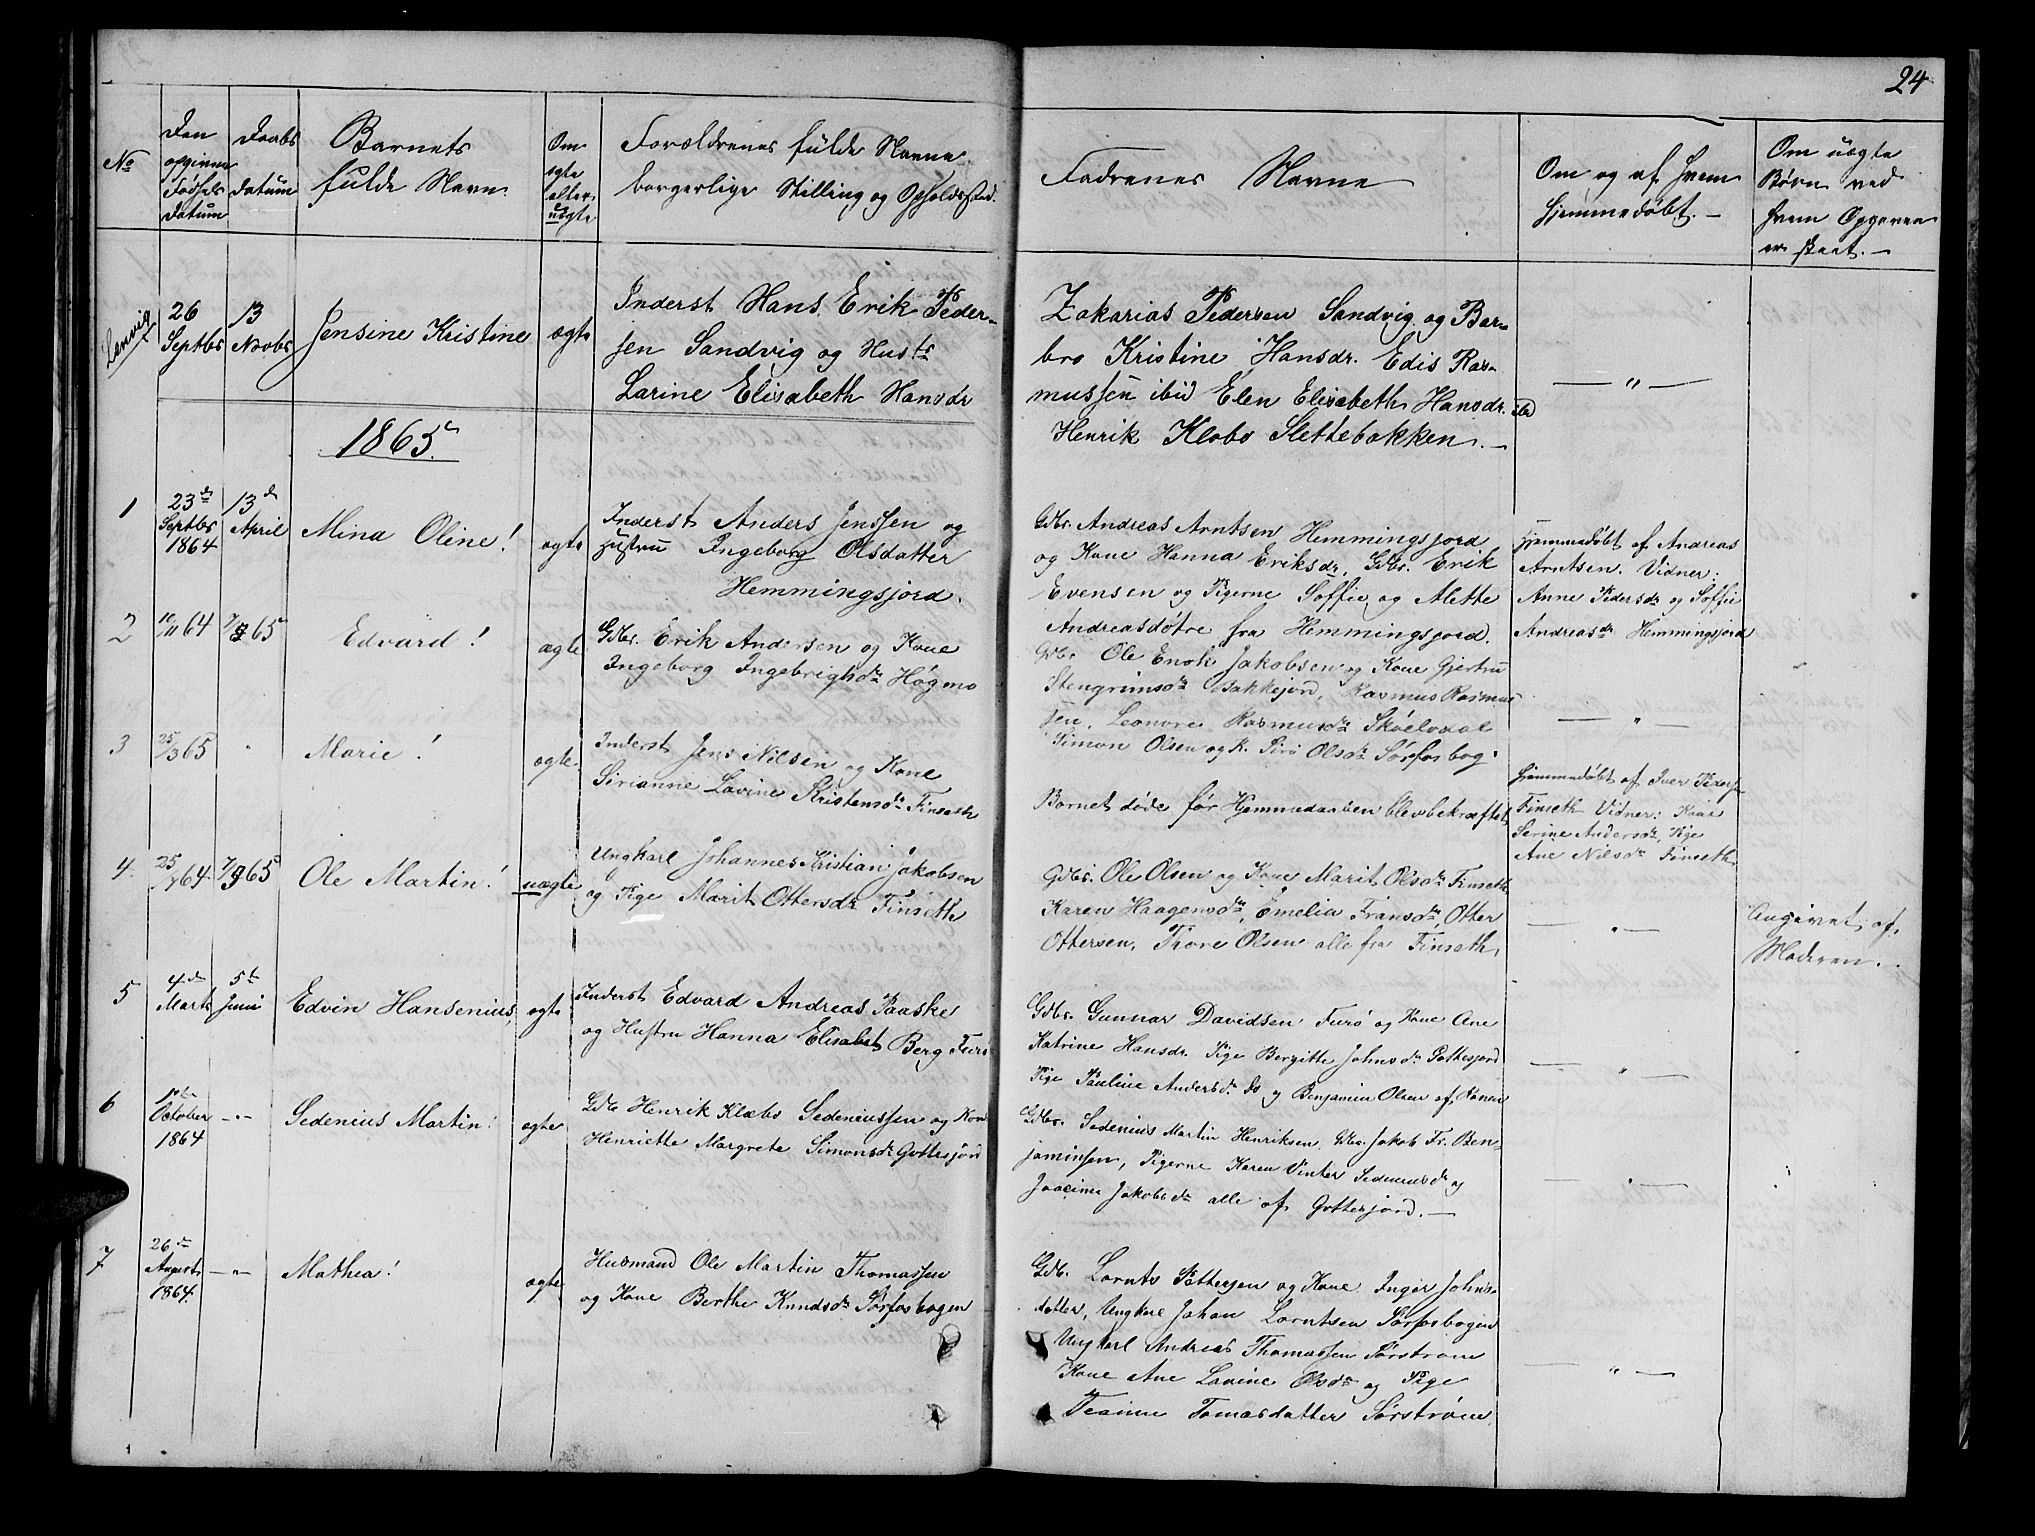 24
No
Den
opgivne
Fødsels
datum
Daabs
datum
Barnets
fulde Navn.
Om
ægte
eller
uægte
Forældrenes fulde Navne
borgerlige Stilling og Opholdssted.
Fadrenes Navne
Om og af hvem
hjemmedøbt.-
Om uægte
Børn ved
hvem Opgaven
er skeet.-
Lenvig
26
Septbr
13
Novbr
Jensine Kristine
ægte
Inderst Hans Erik Peder-
sen Sandvig og Hustr
Larine Elisabeth Hansdr
Zakarias Pedersen Sandvig og Bar-
bro Kristine Hansdr. Edis Ras-
mussen ibid Elen Elisabeth Hansdr. ibd
Henrik Klæbo Slettebakken.-
— " —
1865
1
23de
Septbr
1864
13de
April
Mina Oline!
ægte
Inderst Anders Jenssen og
Hustru Ingeborg Olsdatter
Hemmingsjord.
Gdbr. Andreas Arntsen Hemmingsjord
og Kone Hanna Eriksdr. Gdbr. Erik
Evensen og Pigerne Soffie og Alette
Andreasdøtre fra Hemmingsjord.
Hjemmedøbt af Andreas
Arntsen. Vidner:
Anne Pedersdr og Soffie
Andreasdr Hemmingsjord
2
10/11 64
Edvard!
ægte
Gdbr. Erik Andersen og Kone
Ingeborg Ingebrigtsdr Høgmo
Gdbr Ole Enok Jakobsen og Kone Gjertru
Stengrimsdr Bakkejord, Rasmus Rasmus
sen, Leonore Rasmusdr Skøelvdal
Simon Olsen og K. Siri Olsdr Sørfosbog.
— " —
3
25/3 65
"
Marie!
ægte
Inderst Jens Nilsen og Kone
Sirianne Lavine Kristensdr Finseth
Barnet døde før Hjemmedaaben blev bekræftet
Hjemmedøbt af Iver Peders
Finseth Vidner: Kone
Serine Andersdr, Pige
Ane Nilsdr Finseth
4.
Ole Martin!
uægte
Ungkarl Johannes Kristian Jakobsen
og Pige Marit Ottersdr Finseth
Gdbr. Ole Olsen og Kone Marit Olsdr Finseth
Karen Haagensdr, Emelia Fransdr, Otter
Ottersen, Trone Olsen alle fra Finseth
— " —
Angivet af
Moderen.-
5
4de
Marts
5te
Juni
Edvin Hansenius
ægte
Inderst Edvard Andreas Paaske
og Hustru Hanna Elisabet Berg Furø
Gdbr. Gunnar Davidsen Furø og Kone Ane
Katrine Hansdr. Pige Bergitte Johnsdr Pottesjord
Pige Pauline Andersdr do og Benjamin Olsen af
— " —
6
October
1864
- " -
Sedenius Martin!
ægte
Gdb Henrik Klæbo Sedeniussen og Kone
Henriette Margrete Simonsdr Gottesjord
Gdbr. Sedenius Martin Henriksen, Gbr. Jakob Fr. Ben-
jaminsen, Pigerne Karen Vinter Sedeniusdr og
Joacime Jakobsdr alle af Gottesjord.—
— " —
7
26de
August
1864.
- " -
Mathea!
ægte
Husmand Ole Martin Thomassen
og Kone Berthe Knudsdr Sørfosbogen
Gdb. Lornts Pettersen og Kone Inger Johns-
datter, Ungkarl Johan Lorntsen Sørfosbogen
Ungkarl Andreas Thomassen Sørstrøm
Kone Ane Lovine Olsdr og Pige
Tomasdatter Sørstrøm.
— " —